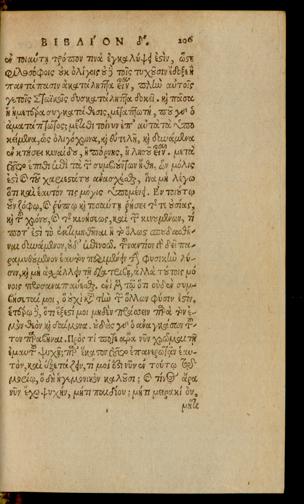 ΒΙΒΛΙΟΝ δ´. 206
ἐν τοιαύτῃ τρόπον τινὰ ἐγκαλύψῃ ἐστὶν, ὥστε
φιλοσόφοις οὐκ ὀλίγοις οὐδὲ τοῖς τυχοῦσιν ἔδοξε
παντάπασιν ἀκατάληπτα εἶναι, πλὴν αὐτοῖς
γε τοῖς Στωϊκοῖς δυσκατάληπτα δοκεῖ. καὶ πᾶσα
ἡ ἡμετέρα συγκατάθεσις, μεταπτωτή. ποῦ γὰρ ὁ
ἀμετάπτωτος; μέτιθι τοίνυν ἐπ' αὐτὰ τὰ ὑπο
κείμενα, ὡς ὀλιγοχρόνια, καὶ εὐτελῆ, καὶ δυνάμενα
ἐν κτήσει κιναίδου, ἢ πόρνης, ἢ λῃστοῦ εἶναι. μετὰ
τοῦτο ἔπιθι ἐπὶ τὰ τῶν συμβιούντων ἤθη. ὧν μόλις
ἐστὶ καὶ τοῦ χαριεστάτου ἀνασχέσθαι, ἵνα μὴ λέγω
ὅτι καὶ ἑαυτόν τις μόγις ὑπομένει. Ἐν τοιούτῳ
οὖν ζόφῳ, καὶ ῥύπῳ, καὶ τοσαύτῃ ῥύσει τῆς τε οὐσίας,
καὶ τοῦ χρόνου, καὶ τῆς κινήσεως, καὶ τῶν κινουμένων, τί
ποτ' ἐστὶ τὸ ἐκτιμηθῆναι ἢ τὸ ὅλως σπουδασθῆ
ναι δυνάμενον, οὐδ' ἐπινοῶ. τοὐναντίον γὰρ δεῖ πα
ραμυθούμενον ἑαυτὸν περιμένειν τὴν φυσικὴν λύ
σιν, καὶ μὴ ἀσχάλλειν τῇ διατριβῇ, ἀλλὰ τούτοις μό
νοις προσαναπαύεσθαι. ἑνὶ μὲν τῷ ὅτι οὐδὲν συμ
βήσεταί μοι, ὃ οὐχὶ κατὰ τὴν τῶν ὅλων φύσιν ἐστίν,
ἑτέρῳ δὲ, ὅτι ἔξεστί μοι μηδὲν πράσσειν παρὰ τὸν ἐ
μὸν θεὸν καὶ δαίμονα. οὐδεὶς γὰρ ὁ ἀναγκάσων τοῦ
τον παραβῆναι. Πρὸς τί ποτε ἄρα νῦν χρῶμαι τῇ
ἐμαυτοῦ ψυχῇ; παρ' ἕκαστα τοῦτο ἐπανερωτᾶν ἑαυ
τὸν, καὶ ἐξετάζειν, τί μοι ἐστὶ νῦν ἐν τούτῳ τῷ
μορίῳ, ὃ δὴ ἡγεμονικὸν καλοῦσι; καὶ τίνος ἄρα
νῦν ἔχω ψυχήν, μήτι παιδίου; μήτι μειρακίου.
μήτι